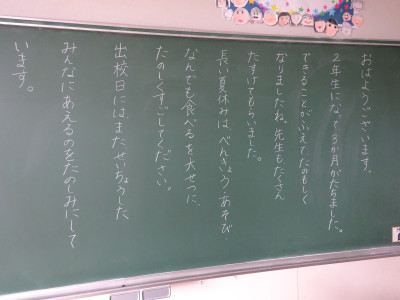 おはようございます。
２年生になって４か月がたちました。
できることがふえてたのもしく
なりましたね。先生も、たくさん
たすけてもらいました。
長い夏休みは、べんきょう、あそび、
なんでも食べるを大せつに、
たのしくすごしてください。
出校日には、またせいちょうした
みんなにあえるのをたのしみにして
います。